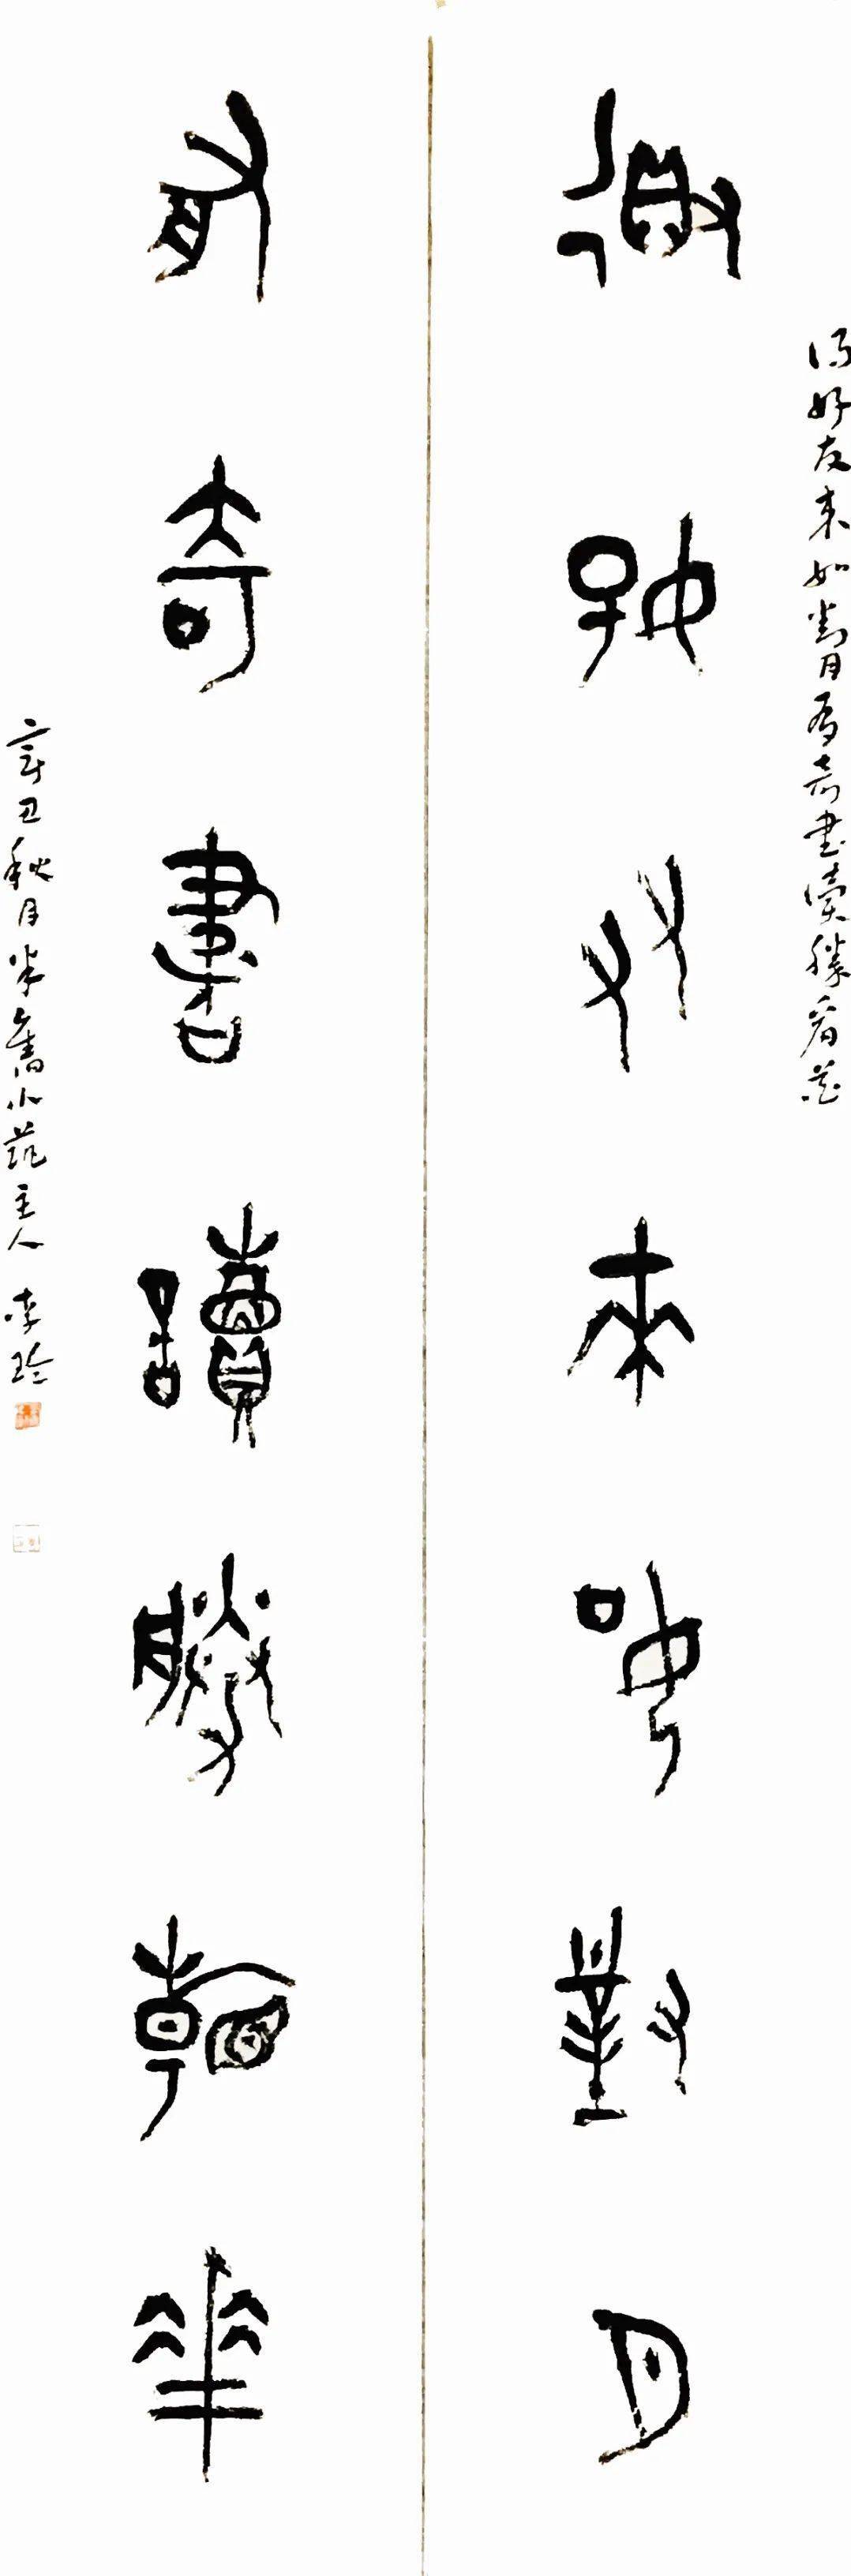 得好友来如對月有奇書讀勝看花
得好友來如對月
有奇書讀勝看華
辛丑秋月半舊小苑主人 李玲